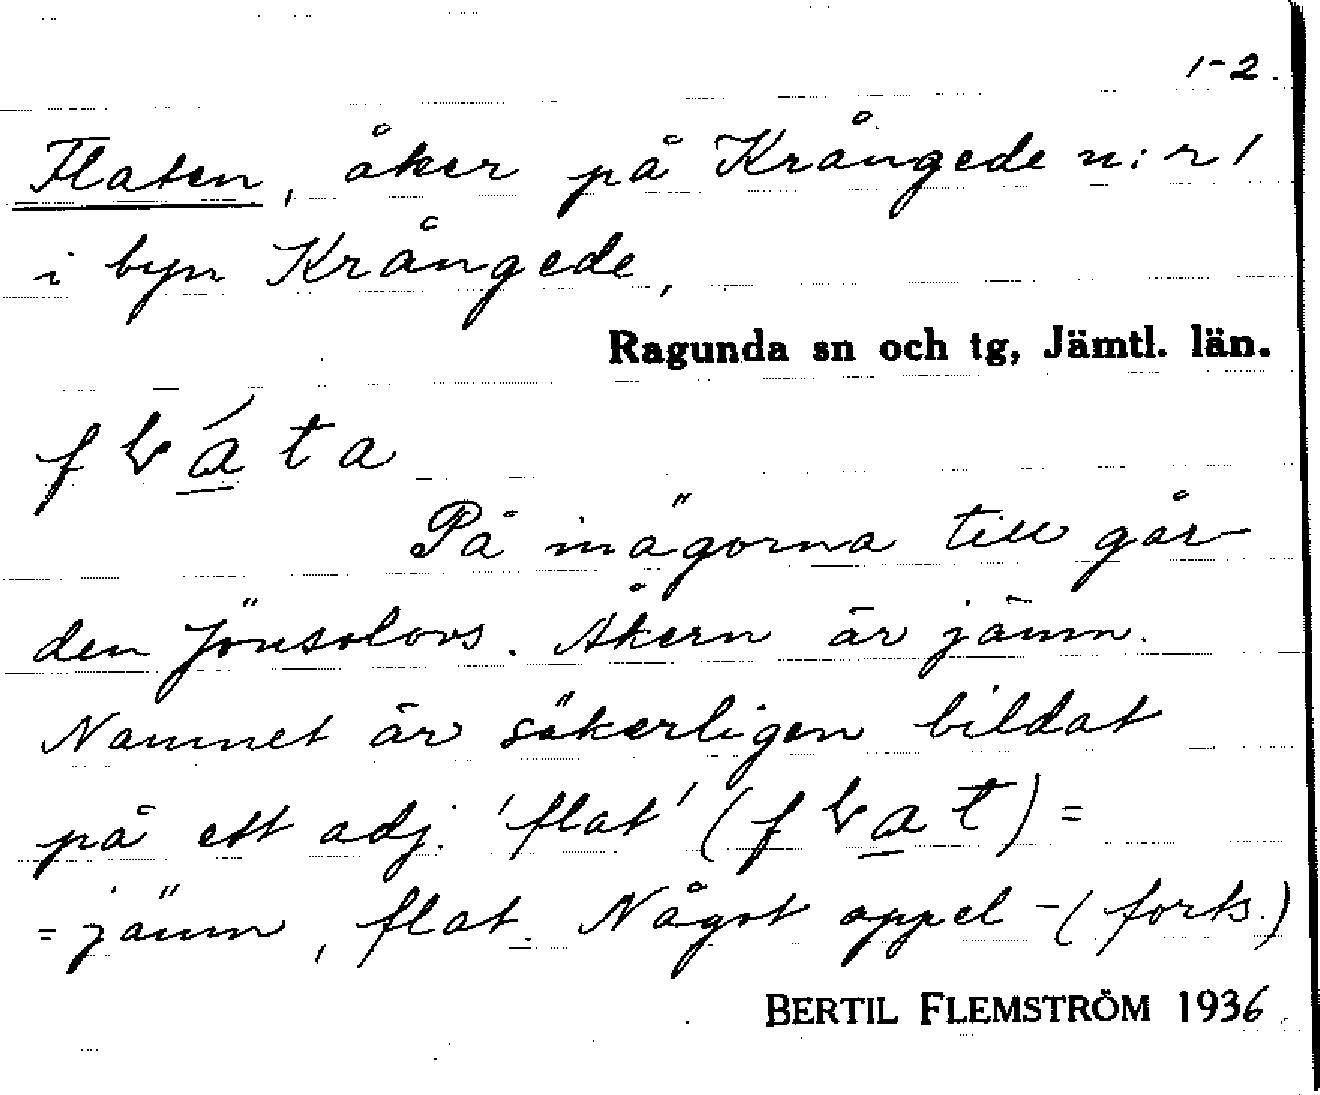 1-2.
Flaten, åker på Krångede n:r 1
i byn Krångede,
Ragunda sn och tg, Jämtl. län.
På inägorna till går-
den Jönsolovs. Åkern är jämn.
Namnet är säkerligen bildat
på ett adj. 'flat' =
= jämn, flat. Något appel-(forts.)
BERTIL FLEMSTRÖM 1936